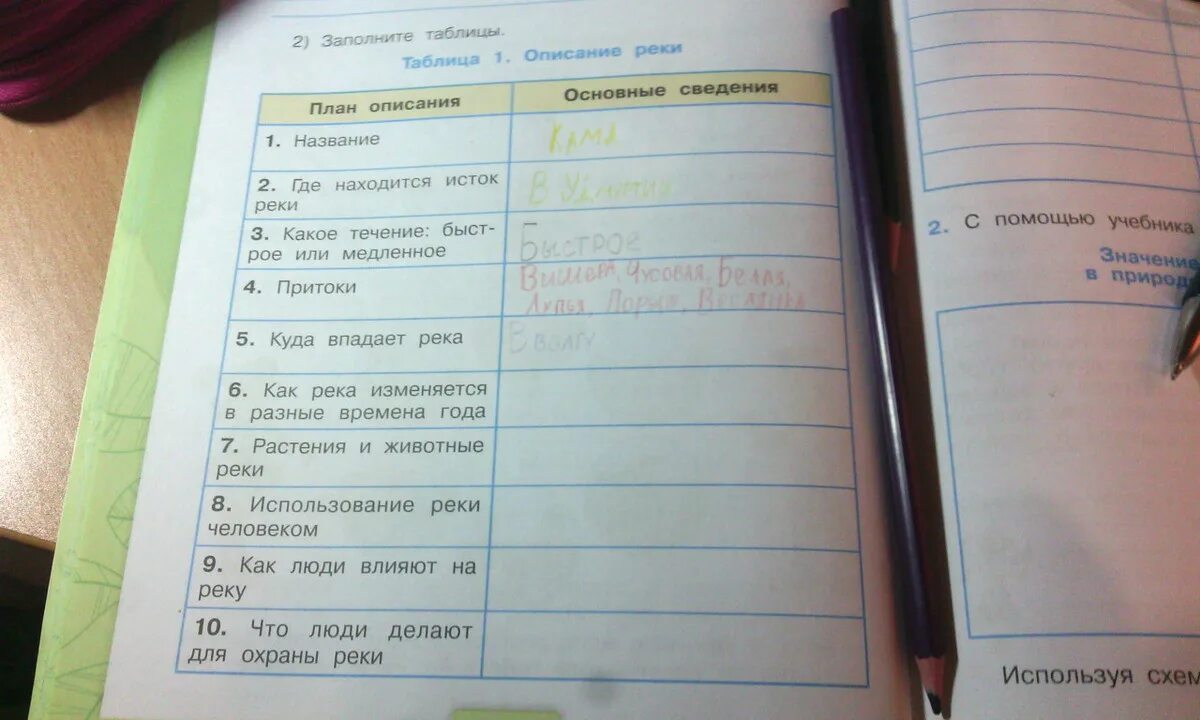 2) Заполните таблицы.
Таблица 1. Описание реки
План описания
Основные сведения
1. Название
Кама
2. Где находится исток
реки
В Удмуртии
3. Какое течение: быст-
рое или медленное
Быстрое
4. Притоки
Вишера, Чусовая, Белая,
Лупья, Весляна
5. Куда впадает река
В Волгу
6. Как река изменяется
в разные времена года
7. Растения и животные
реки
8. Использование реки
человеком
9. Как люди влияют на
реку
10. Что люди делают
для охраны реки
2. С помощью учебника
Значение
в природ
Используя схем